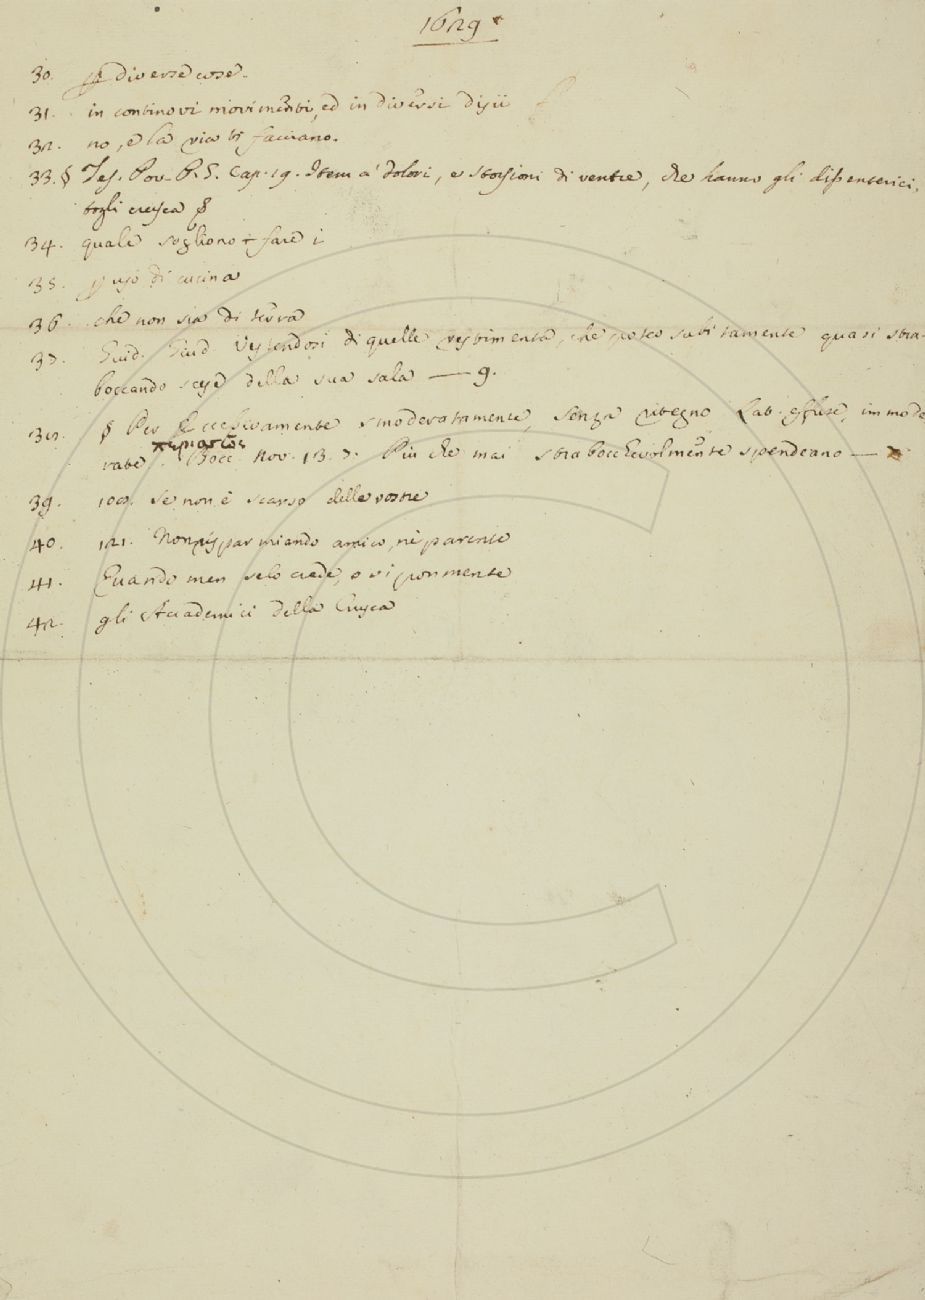 1629
30. p diverse cose.
31. in continovi movimenti, ed in diversi disii
32. no, e la via ti facciano.
33. § Tes. Pov. P. S. Cap. 19. Item a' dolori, e storsioni di ventre, che hanno gli dissenterici,
togli crusca §
34. quale sogliono + fare i
35. p uso di cucina
36. che non sia di terra
37. Guid. Giud Vestendosi di quelle vestimenta, che posto subitamente quasi stra-
boccando scese della sua sala — 9.
38. § Per Eccessivamente smoderatamente, senza ritegno Lat. effuse, immode
rate. Bocc. Nov. 13. 7. Più che mai strabocchevolmente spendeano —
39. 109. Se non è scarso delle vostre
40. 121. Non risparmiando amico, nè parente
41. Quando men selo crede, o vi pon mente
42. gli Accademici della Crusca